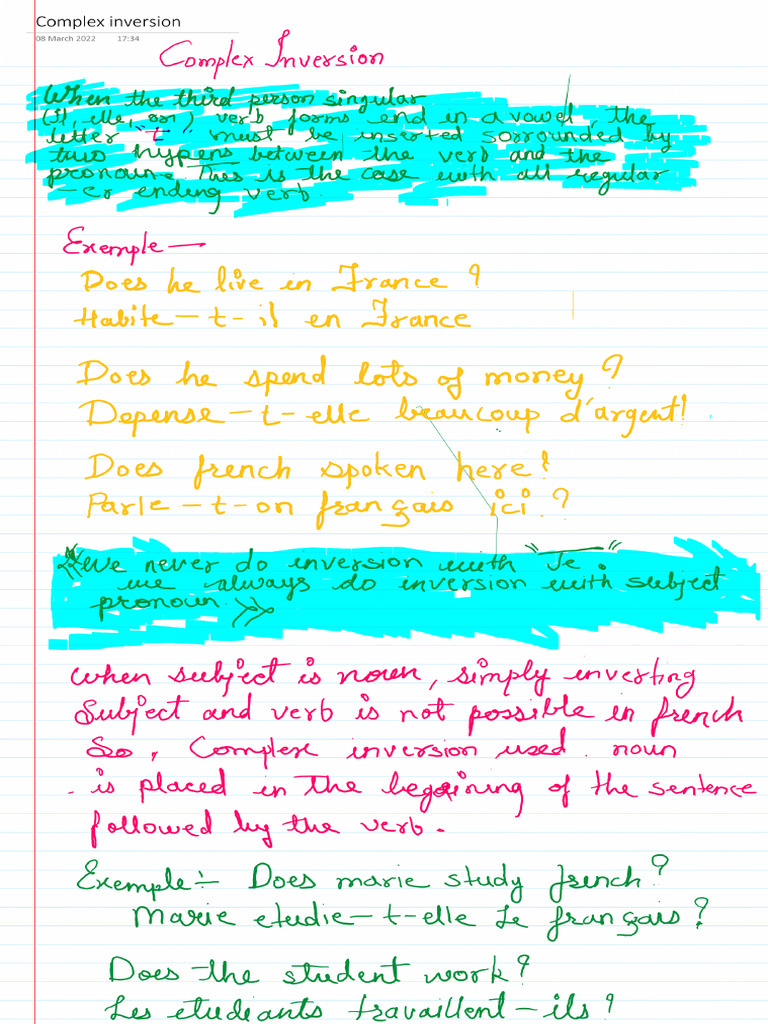 Complex inversion
08 March 2022 17:34
Complex Inversion
When the third person singular
(il, elle, on) verb forms end in a vowel, the
letter "t" must be inserted sorrounded by
two hypens between the verb and the
pronoun. This is the case with all regular
-er ending verb.
Exemple —
Does he live in France ?
Habite-t-il en France
Does he spend lots of money ?
Depense-t-elle beaucoup d'argent!
Does french spoken here!
Parle-t-on français ici.?
we never do inversion with "Je".
we always do inversion with subject
pronoun. >>
When subject is noun, simply inverting
Subject and verb is not possible in french
So, Complex inversion used. noun
is placed in the begaining of the sentence
followed by the verb.
Exemple:- Does marie study french?
Marie etudie-t-elle le français?
Does the student work?
Les etudiants travaillent-ils?